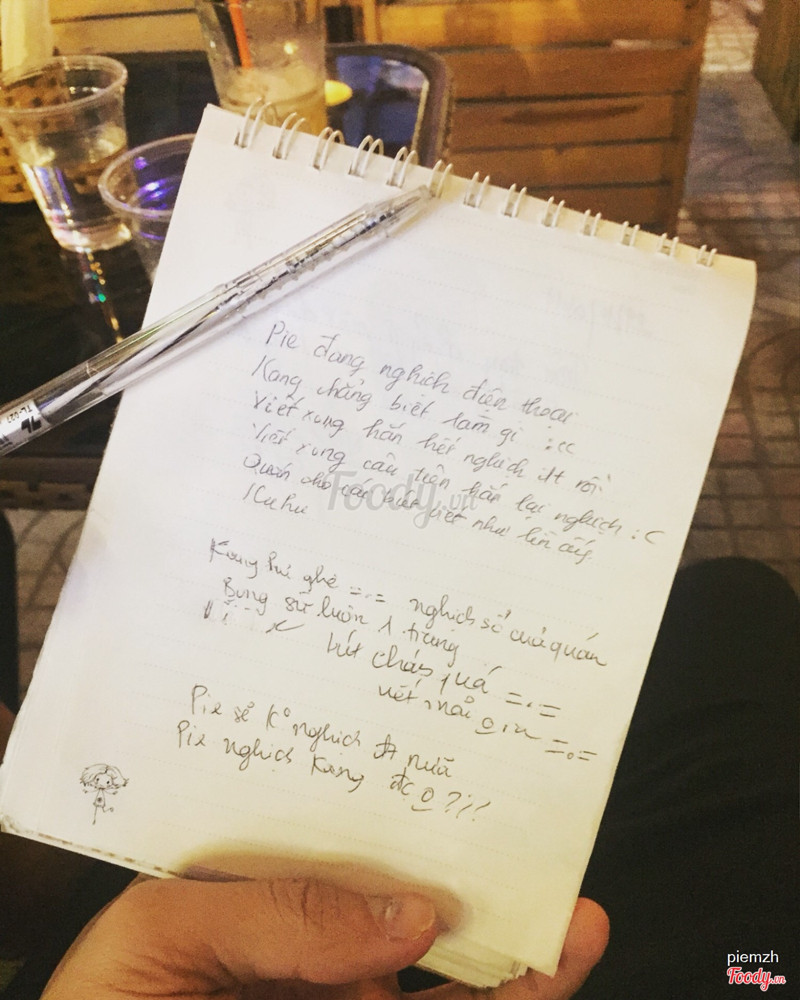 Pie đang nghịch điện thoại
Kang chẳng biết làm gì :cc
Viết xong hắn hết nghịch đt rồi
Viết xong câu trên hắn lại nghịch :C
Quán cho cán bút viết như lên
Ku hu
Kang hư ghê =.= nghịch sổ của quán
Bung sứ luôn 1 trang
bút chán quá =.=
viết mãi o ra =.=
Pie sẽ k° nghịch đt nữa
Pie nghịch Kang đc o ?!!
TL-027
Foody.vn
piemzh
Foody.vn